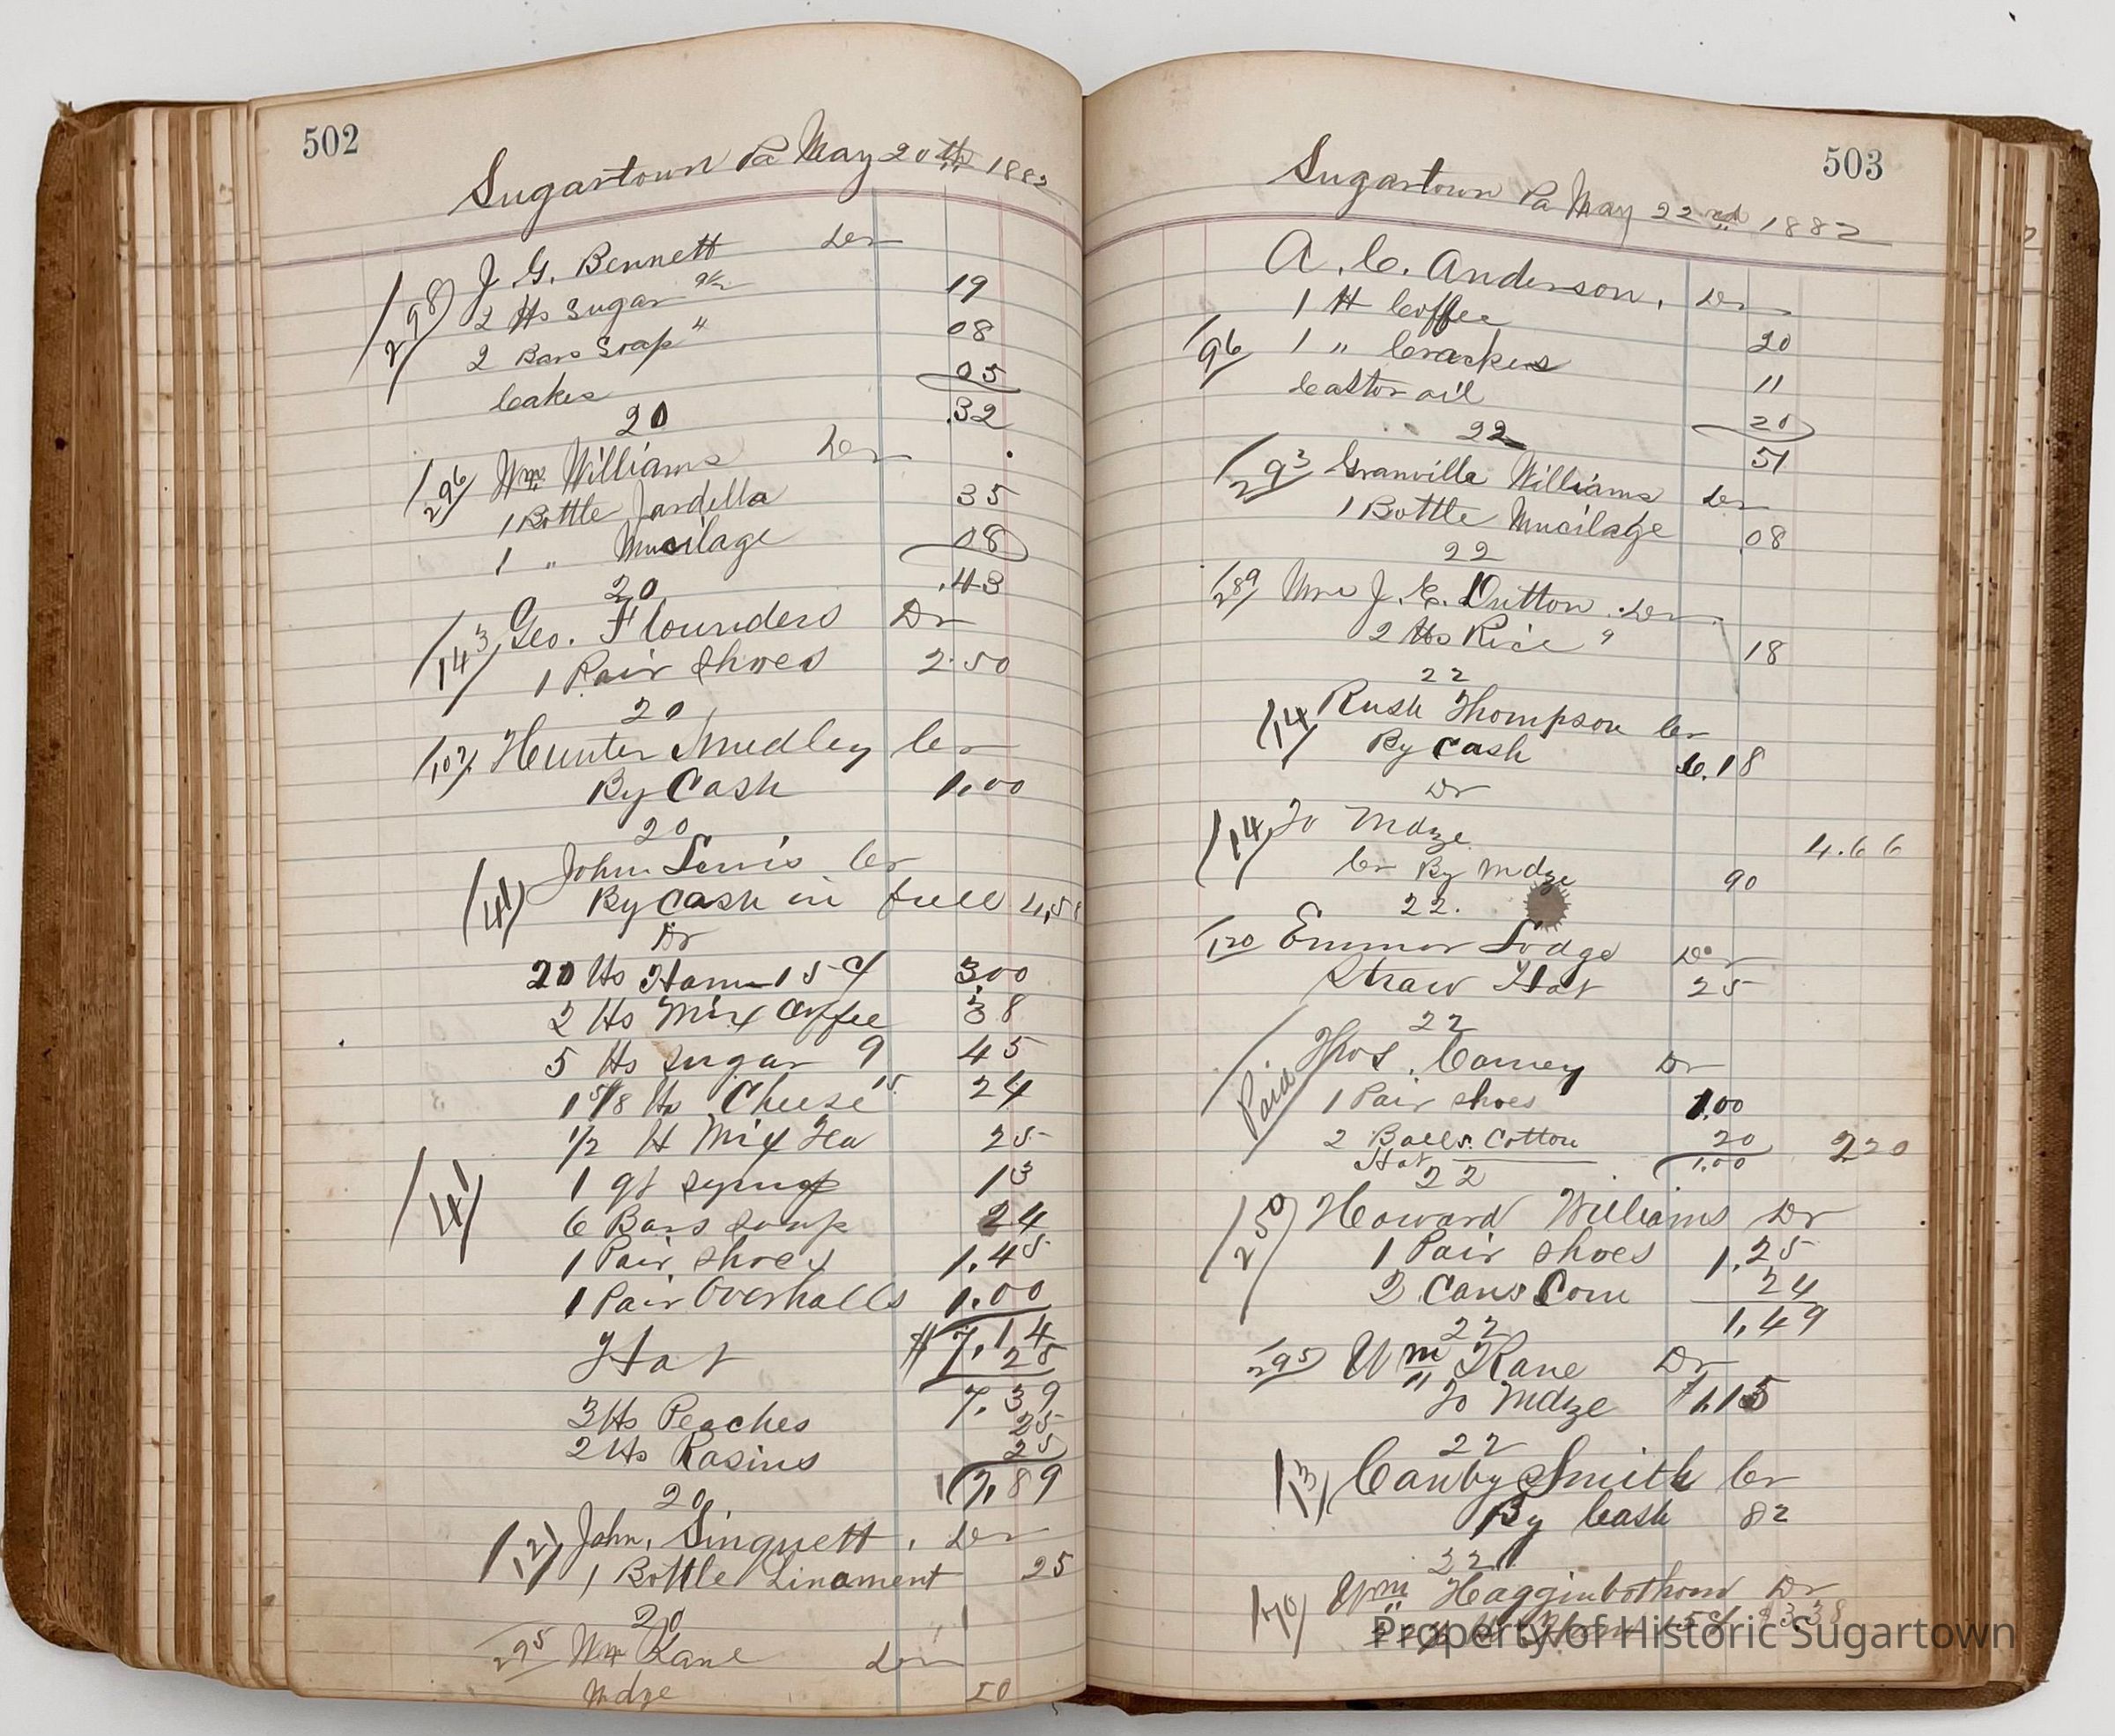 502
Sugartown Pa May 20th 1882
298 J. G. Bennett Dr
2 lbs Sugar 9½ 19
2 Bars Soap 4 08
Cakes 05
.32
20
296 Wm Williams Dr
1 Bottle Jardella 35
1 " Mucilage 08
.43
20
143 Geo. Flounders Dr
1 Pair Shoes 2.50
20
107 Hunter Smedley Cr
By Cash 1.00
20
41 John Lewis Cr
By Cash in full 4,58
Dr
20 lbs Ham 15 c 3.00
2 lbs Mix Coffee 38
5 lbs Sugar 9 45
1 5/8 lb Cheese 15 24
1/2 lb Mix Tea 25
1 qt syrup 13
41
6 Bars soap 24
1 Pair shoes 1.45
1 Pair Overhalls 1.00
$7.14
Hat 25
7.39
3 lbs Peaches 25
2 lbs Rasins 25
7.89
20
12 John, Singuett, Dr
1 Bottle Linament 25
20
295 Wm Kane Dr
Mdze 50
503
Sugartown Pa May 22nd 1882
A. C. Anderson, Dr
1 lb Coffee 20
96 1 " Crackers 11
Castor oil 20
51
22
293 Granville Williams Dr
1 Bottle Mucilage 08
22
289 Mrs J. E. Dutton. Dr
2 lbs Rice 9 18
22
14 Rush Thompson Cr
By Cash 6.18
Dr
14 To Mdze 4.66
Cr By Mdze 90
22.
120 Emmor Lodge Dr
Straw Hat 25
22
Paid Thos. Carney Dr
1 Pair shoes 1.00
2 Balls Cotton 20
Hat 1.00 2.20
22
250 Howard Williams Dr
1 Pair shoes 1.25
2 Cans Corn 24
1.49
22
295 Wm Kane Dr
To Mdze 1.15
22
13 Canby Smith Cr
By Cash 82
22
70 Wm Hagginbothom Dr
3.38
Property of Historic Sugartown